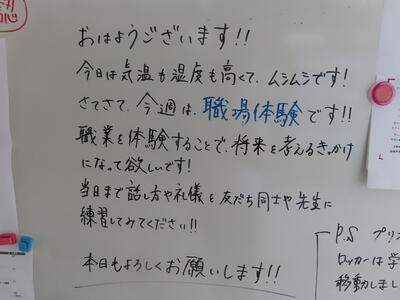 おはようございます!!
今日は気温も湿度も高くて、ムシムシです!
さてさて、今週は、職場体験です!!
職業を体験することで、将来を考えるきっかけ
になって欲しいです!
当日まで話し方や礼儀を友だち同士や先生に
練習してみてください!!
本日もよろしくお願いします!!
P.S プリン
ロッカーは学
移動しまし